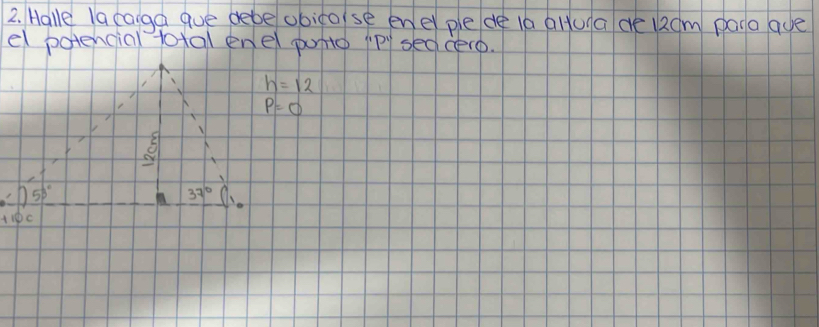 2. Halle la carga que debe ubicarse en el pie de la altura de 12cm para que
el potencial total en el punto "P" sea cero.
h=12
P=0
12cm
53°
37°